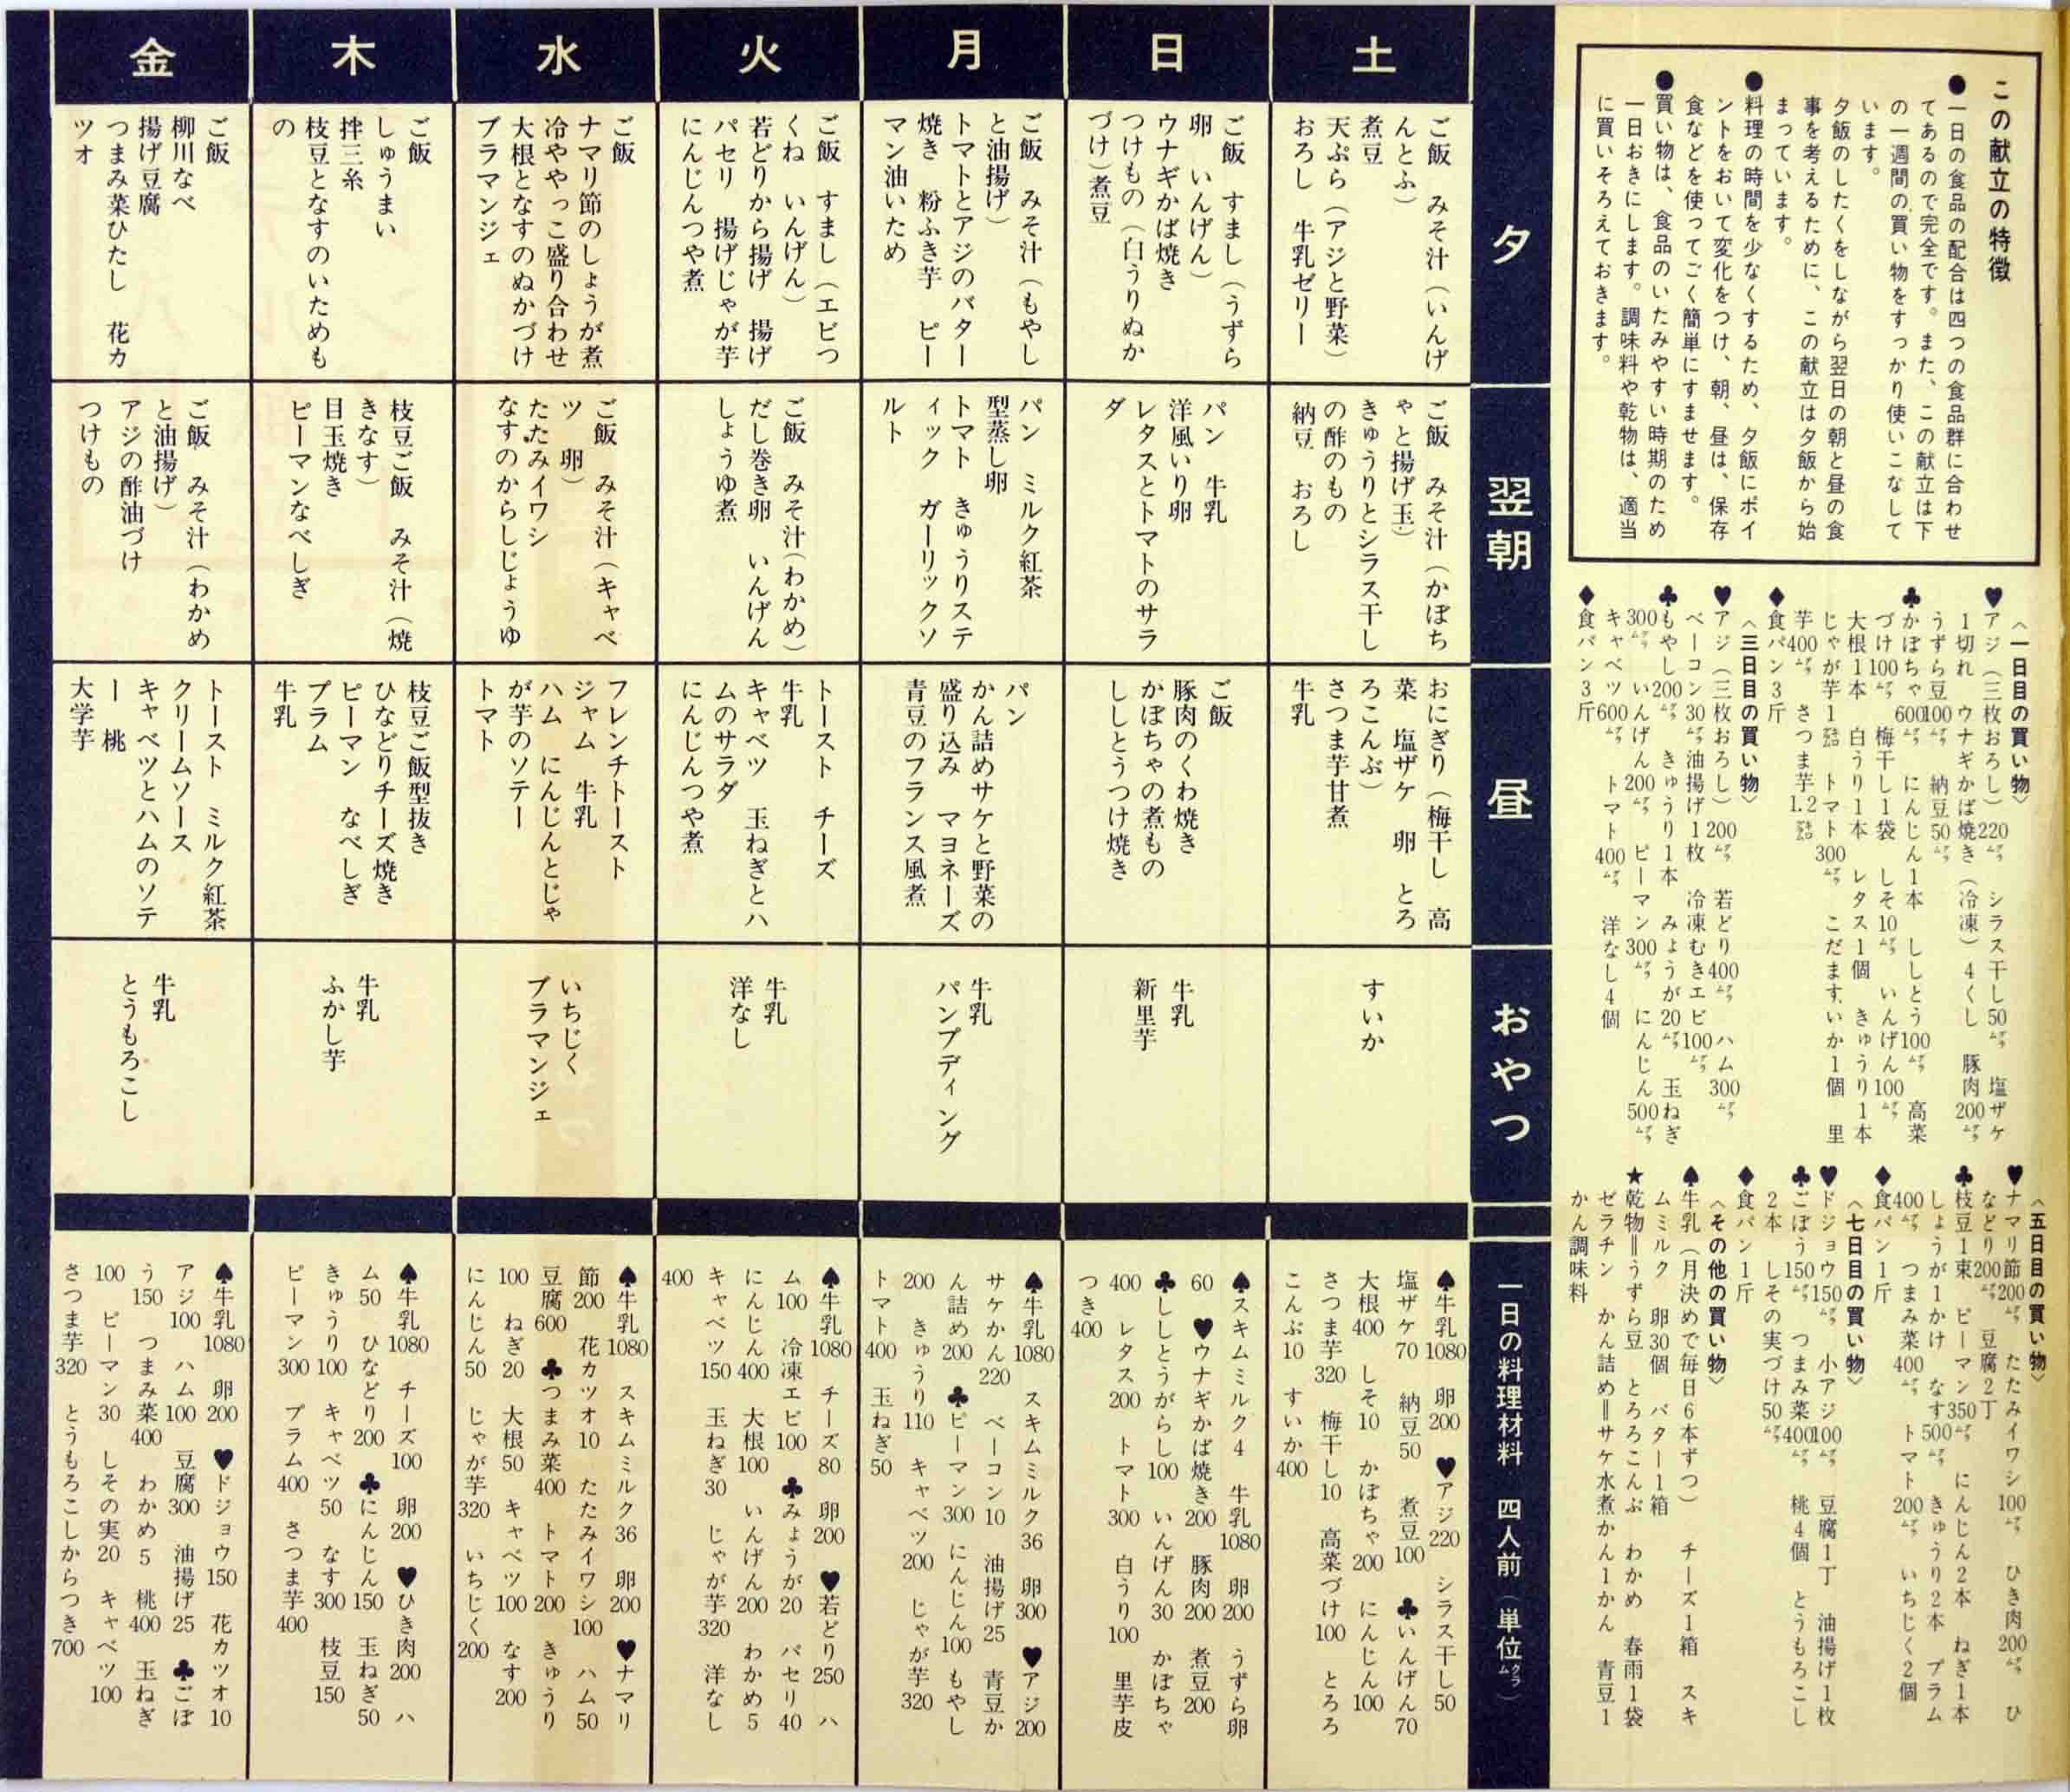 この献立の特徴
●一日の食品の配合は四つの食品群に合わせ
てあるので完全です。また、この献立は下
の一週間の買い物をすっかり使いこなして
います。
夕飯のしたくをしながら翌日の朝と昼の食
事を考えるために、この献立は夕飯から始
まっています。
●料理の時間を少なくするため、夕飯にポイ
ントをおいて変化をつけ、朝、昼は、保存
食などを使ってごく簡単にすませます。
●買い物は、食品のいたみやすい時期のため
一日おきにします。調味料や乾物は、適当
に買いそろえておきます。
〈一日目の買い物〉
♥アジ（三枚おろし）220㌘ シラス干し50㌘ 塩ザケ
1切れ ウナギかば焼き（冷凍）4くし 豚肉200㌘
うずら豆100㌘ 納豆50㌘
♣かぼちゃ600㌘ にんじん1本 ししとう100㌘ 高菜
づけ100㌘ 梅干し1袋 しそ10㌘ いんげん100㌘
大根1本 白うり1本 レタス1個 きゅうり1本
じゃが芋1㌔ トマト300㌘ こだますいか1個 里
芋400㌘ さつま芋1.2㌔
♦食パン3斤
〈三日目の買い物〉
♥アジ（三枚おろし）200㌘ 若どり400㌘ ハム300㌘
ベーコン30㌘ 油揚げ1枚 冷凍むきエビ100㌘
♣もやし200㌘ きゅうり1本 みょうが20㌘ 玉ねぎ
300㌘ いんげん200㌘ ピーマン300㌘ にんじん500㌘
キャベツ600㌘ トマト400㌘ 洋なし4個
♦食パン3斤
〈五日目の買い物〉
♥ナマリ節200㌘ たたみイワシ100㌘ ひき肉200㌘ ひ
などり200㌘ 豆腐2丁
♣枝豆1束 ピーマン350㌘ にんじん2本 ねぎ1本
しょうが1かけ なす500㌘ きゅうり2本 プラム
400㌘ つまみ菜400㌘ トマト200㌘ いちじく2個
♦食パン1斤
〈七日目の買い物〉
♥ドジョウ150㌘ 小アジ100㌘ 豆腐1丁 油揚げ1枚
♣ごぼう150㌘ つまみ菜400㌘ 桃4個 とうもろこし
2本 しその実づけ50㌘
♦食パン1斤
〈その他の買い物〉
♠牛乳（月決めで毎日6本ずつ） チーズ1箱 スキ
ムミルク 卵30個 バター1箱
★乾物＝うずら豆 とろろこんぶ わかめ 春雨1袋
ゼラチン かん詰め＝サケ水煮かん1かん 青豆1
かん調味料
夕
翌朝
昼
おやつ
一日の料理材料 四人前（単位㌘）
土
ご飯 みそ汁（いんげ
んとふ）
煮豆
天ぷら（アジと野菜）
おろし 牛乳ゼリー
ご飯 みそ汁（かぼち
ゃと揚げ玉）
きゅうりとシラス干し
の酢のもの
納豆 おろし
おにぎり（梅干し 高
菜 塩ザケ 卵 とろ
ろこんぶ）
さつま芋甘煮
牛乳
すいか
♠牛乳1080 卵200 ♥アジ220 シラス干し50
塩ザケ70 納豆50 煮豆100 ♣いんげん70
大根400 しそ10 かぼちゃ200 にんじん100
さつま芋320 梅干し10 高菜づけ100 とろろ
こんぶ10 すいか400
日
ご飯 すまし（うずら
卵 いんげん）
ウナギかば焼き
つけもの（白うりぬか
づけ）煮豆
パン 牛乳
洋風いり卵
レタスとトマトのサラ
ダ
ご飯
豚肉のくわ焼き
かぼちゃの煮もの
ししとうつけ焼き
牛乳
新里芋
♠スキムミルク4 牛乳1080 卵200 うずら卵
60 ♥ウナギかば焼き200 豚肉200 煮豆200
♣ししとうがらし100 いんげん30 かぼちゃ
400 レタス200 トマト300 白うり100 里芋皮
つき400
月
ご飯 みそ汁（もやし
と油揚げ）
トマトとアジのバター
焼き 粉ふき芋 ピー
マン油いため
パン ミルク紅茶
型蒸し卵
トマト きゅうりステ
ィック ガーリックソ
ルト
パン
かん詰めサケと野菜の
盛り込み マヨネーズ
青豆のフランス風煮
牛乳
パンプディング
♠牛乳1080 スキムミルク36 卵300 ♥アジ200
サケかん220 ベーコン10 油揚げ25 青豆か
ん詰め200 ♣ピーマン300 にんじん100 もやし
200 きゅうり110 キャベツ200 じゃが芋320
トマト400 玉ねぎ50
火
ご飯 すまし（エビつ
くね いんげん）
若どりから揚げ 揚げ
パセリ 揚げじゃが芋
にんじんつや煮
ご飯 みそ汁（わかめ）
だし巻き卵 いんげん
しょうゆ煮
トースト チーズ
牛乳
キャベツ 玉ねぎとハ
ムのサラダ
にんじんつや煮
牛乳
洋なし
♠牛乳1080 チーズ80 卵200 ♥若どり250 ハ
ム100 冷凍エビ100 ♣みょうが20 パセリ40
にんじん400 大根100 いんげん200 わかめ5
キャベツ150 玉ねぎ30 じゃが芋320 洋なし
400
水
ご飯
ナマリ節のしょうが煮
冷ややっこ盛り合わせ
大根となすのぬかづけ
ブラマンジェ
ご飯 みそ汁（キャベ
ツ 卵）
たたみイワシ
なすのからしじょうゆ
フレンチトースト
ジャム 牛乳
ハム にんじんとじゃ
が芋のソテー
トマト
いちじく
ブラマンジェ
♠牛乳1080 スキムミルク36 卵200 ♥ナマリ
節200 花カツオ10 たたみイワシ100 ハム50
豆腐600 ♣つまみ菜400 トマト200 きゅうり
100 ねぎ20 大根50 キャベツ100 なす200
にんじん50 じゃが芋320 いちじく200
木
ご飯
しゅうまい
拌三糸
枝豆となすのいためも
の
枝豆ご飯 みそ汁（焼
きなす）
目玉焼き
ピーマンなべしぎ
枝豆ご飯型抜き
ひなどりチーズ焼き
ピーマン なべしぎ
プラム
牛乳
牛乳
ふかし芋
♠牛乳1080 チーズ100 卵200 ♥ひき肉200 ハ
ム50 ひなどり200 ♣にんじん150 玉ねぎ50
きゅうり100 キャベツ50 なす300 枝豆150
ピーマン300 プラム400 さつま芋400
金
ご飯
柳川なべ
揚げ豆腐
つまみ菜ひたし 花カ
ツオ
ご飯 みそ汁（わかめ
と油揚げ）
アジの酢油づけ
つけもの
トースト ミルク紅茶
クリームソース
キャベツとハムのソテ
ー 桃
大学芋
牛乳
とうもろこし
♠牛乳1080 卵200 ♥ドジョウ150 花カツオ10
アジ100 ハム100 豆腐300 油揚げ25 ♣ごぼ
う150 つまみ菜400 わかめ5 桃400 玉ねぎ
100 ピーマン30 しその実20 キャベツ100
さつま芋320 とうもろこしからつき700